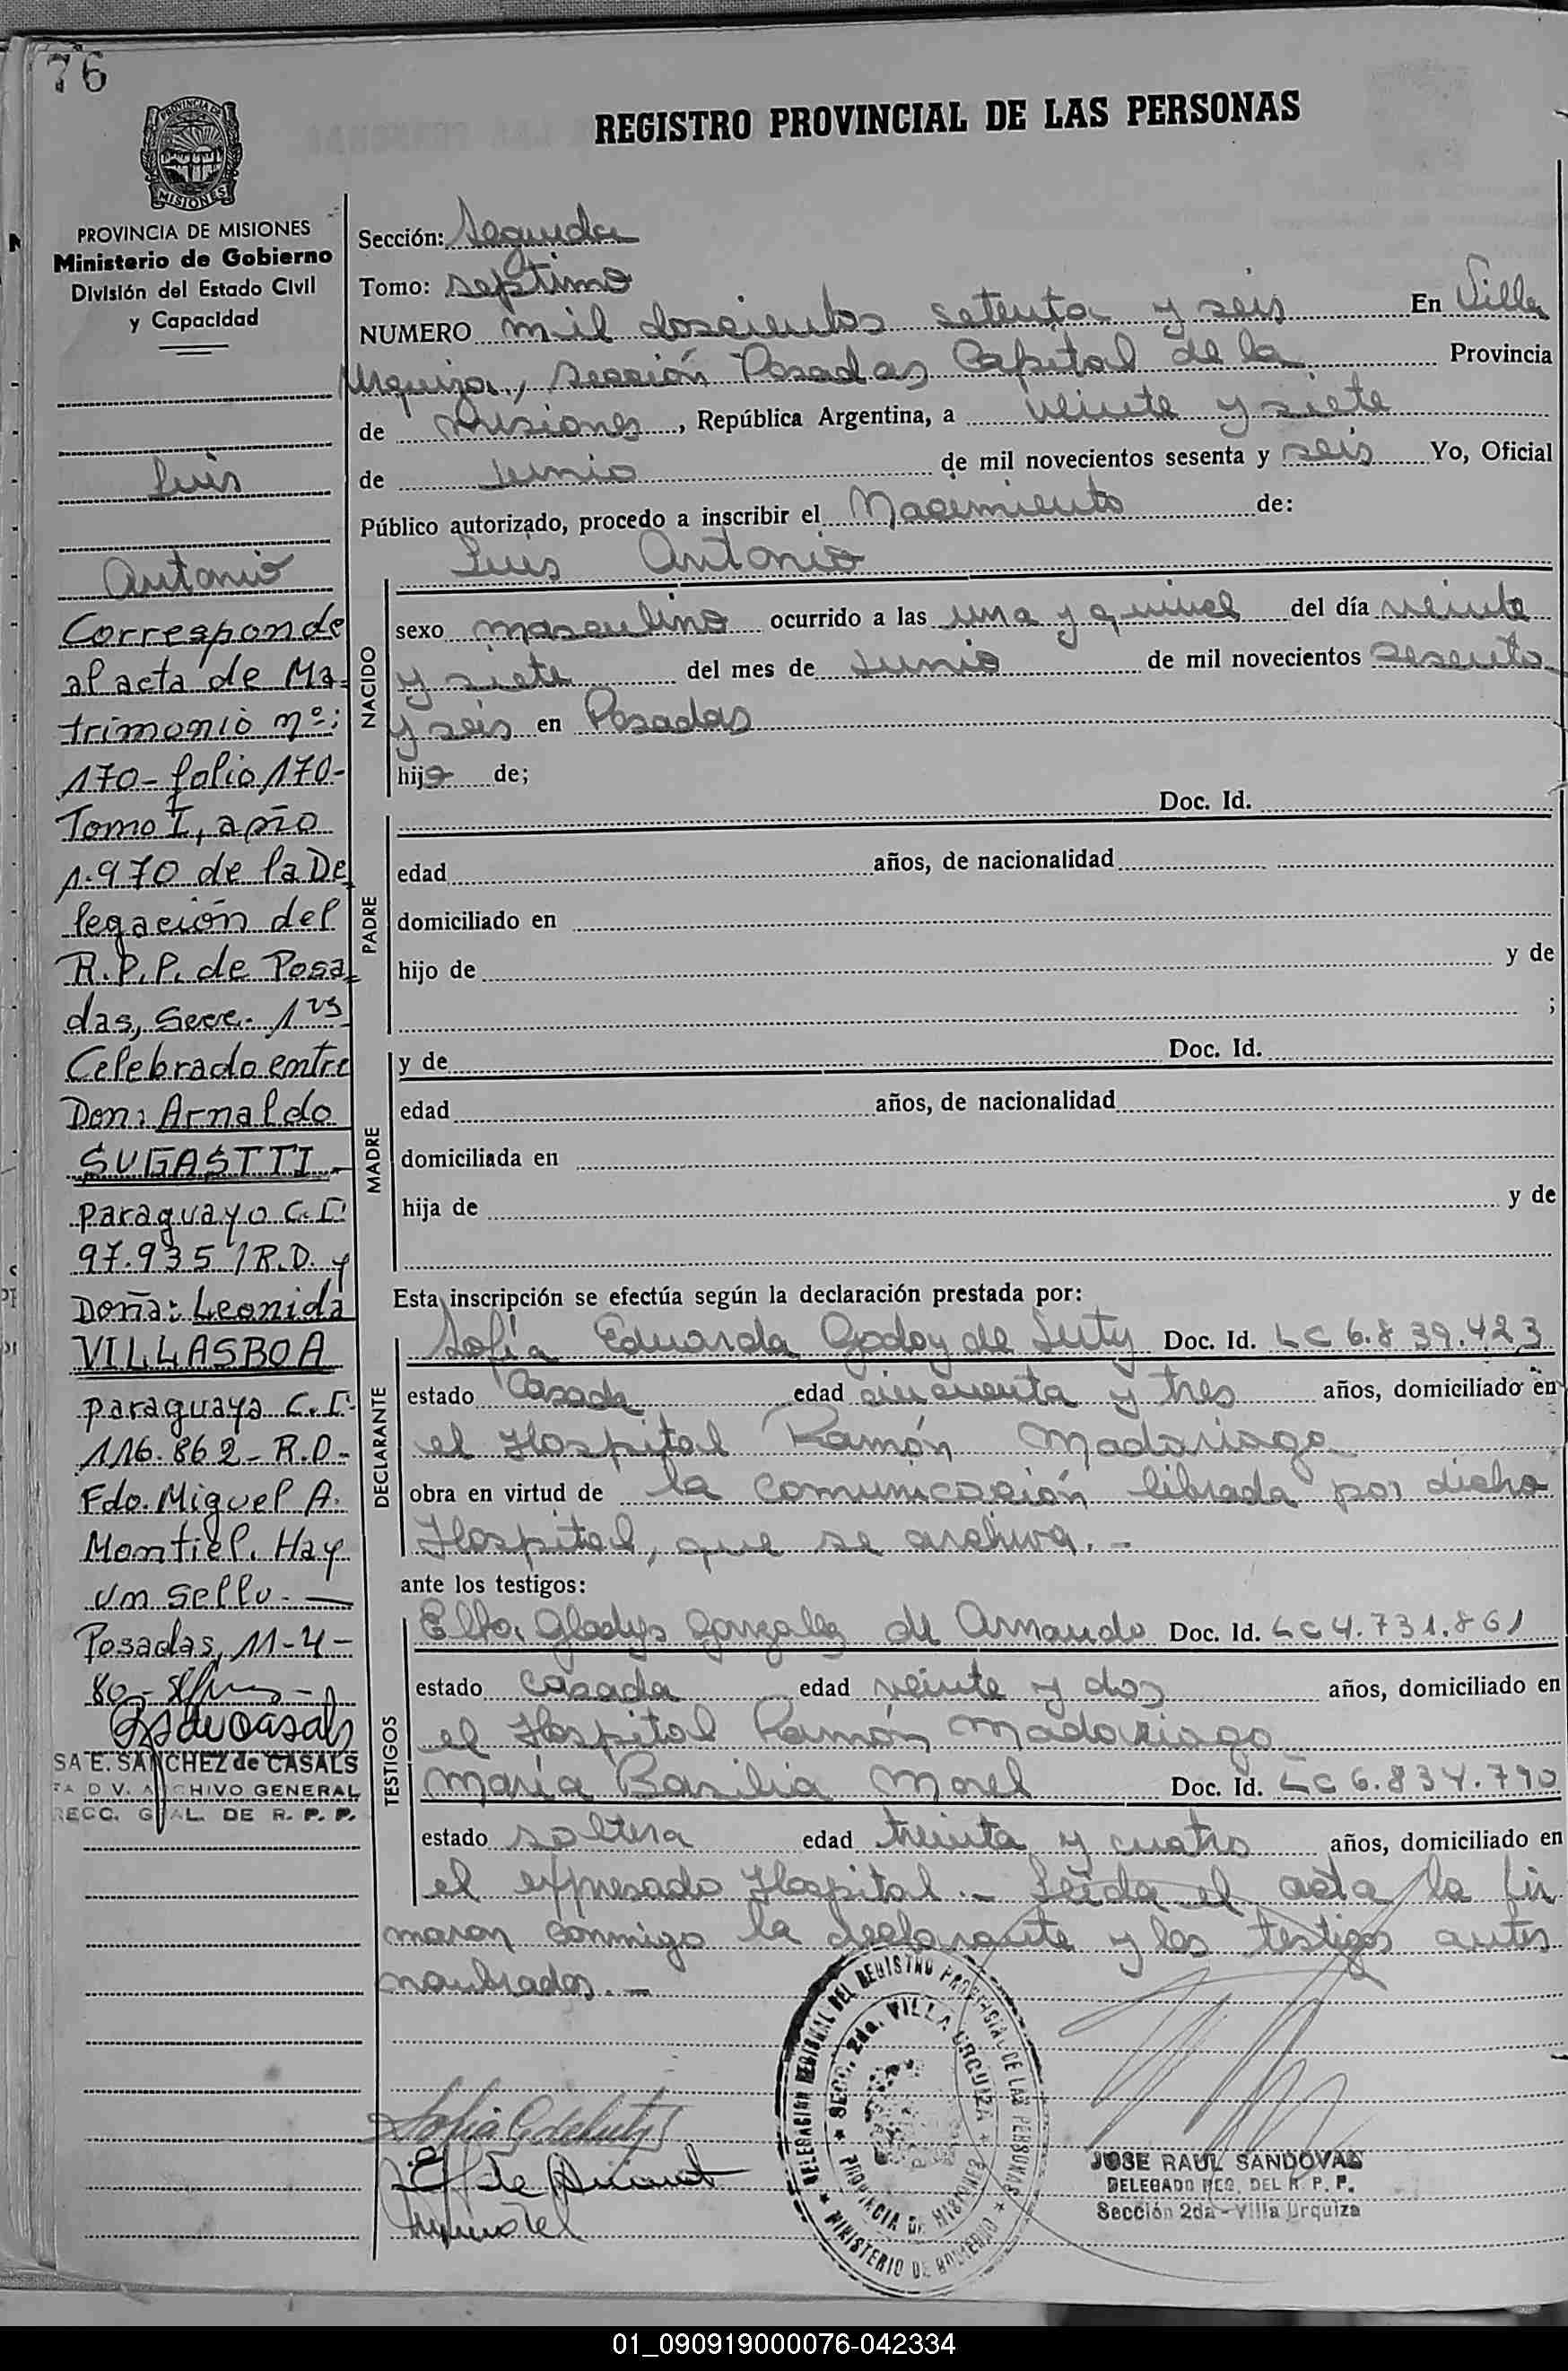 76
PROVINCIA DE
MISIONES
REGISTRO PROVINCIAL DE LAS PERSONAS
PROVINCIA DE MISIONES
Ministerio de Gobierno
División del Estado Civil
y Capacidad
Luis
Antonio
Corresponde
al acta de Ma-
trimonio nº:
170- folio 170-
Tomo I, año
1.970 de la De
legación del
R.P.P. de Posa
das, Secc. 1ra
Celebrado entre
Don: Arnaldo
SUGASTTI.-
paraguayo C.I.
97.935 / R.D. y
Doña: Leonida
VILLASBOA
paraguaya C.I.
116.862 - R.D.-
Fdo. Miguel A.
Montiel. Hay
un sello. —
Posadas, 11-4-
80.-
SA E. SANCHEZ de CASALS
D V. ARCHIVO GENERAL
RECC. GRAL. DE R. P. P.
Sección: Segunda
Tomo: septimo
NUMERO mil doscientos setenta y seis En Villa
Urquiza, Sección Posadas Capital de la Provincia
de Misiones, República Argentina, a veinte y siete
de Junio de mil novecientos sesenta y seis Yo, Oficial
Público autorizado, procedo a inscribir el Nacimiento de:
Luis Antonio
NACIDO
sexo masculino ocurrido a las una y quince del día veinte
y siete del mes de Junio de mil novecientos sesenta
y seis en Posadas
hijo de;
Doc. Id.
PADRE
edad años, de nacionalidad
domiciliado en
hijo de y de
;
MADRE
y de Doc. Id.
edad años, de nacionalidad
domiciliada en
hija de y de
Esta inscripción se efectúa según la declaración prestada por:
DECLARANTE
Sofía Eduarda Godoy de Luty Doc. Id. LC 6.839.423
estado Casada edad cincuenta y tres años, domiciliado en
el Hospital Ramón Madariaga
obra en virtud de la comunicación librada por dicho
Hospital, que se archiva.-
ante los testigos:
TESTIGOS
Elba Gladys Gonzalez de Amando Doc. Id. LC 4.731.861
estado casada edad veinte y dos años, domiciliado en
el Hospital Ramón Madariaga
María Basilia Morel Doc. Id. LC 6.834.790
estado soltera edad treinta y cuatro años, domiciliado en
el expresado Hospital.- Leída el acta la fir
maron conmigo la declarante y los testigos antes
nombrados.-
DELEGACION REGIONAL DEL REGISTRO PROVINCIAL DE LAS PERSONAS
SECC. 2da. VILLA URQUIZA
PROVINCIA DE MISIONES
MINISTERIO DE GOBIERNO
JOSE RAUL SANDOVAL
DELEGADO REG. DEL R. P. P.
Sección 2da - Villa Urquiza
01_090919000076-042334